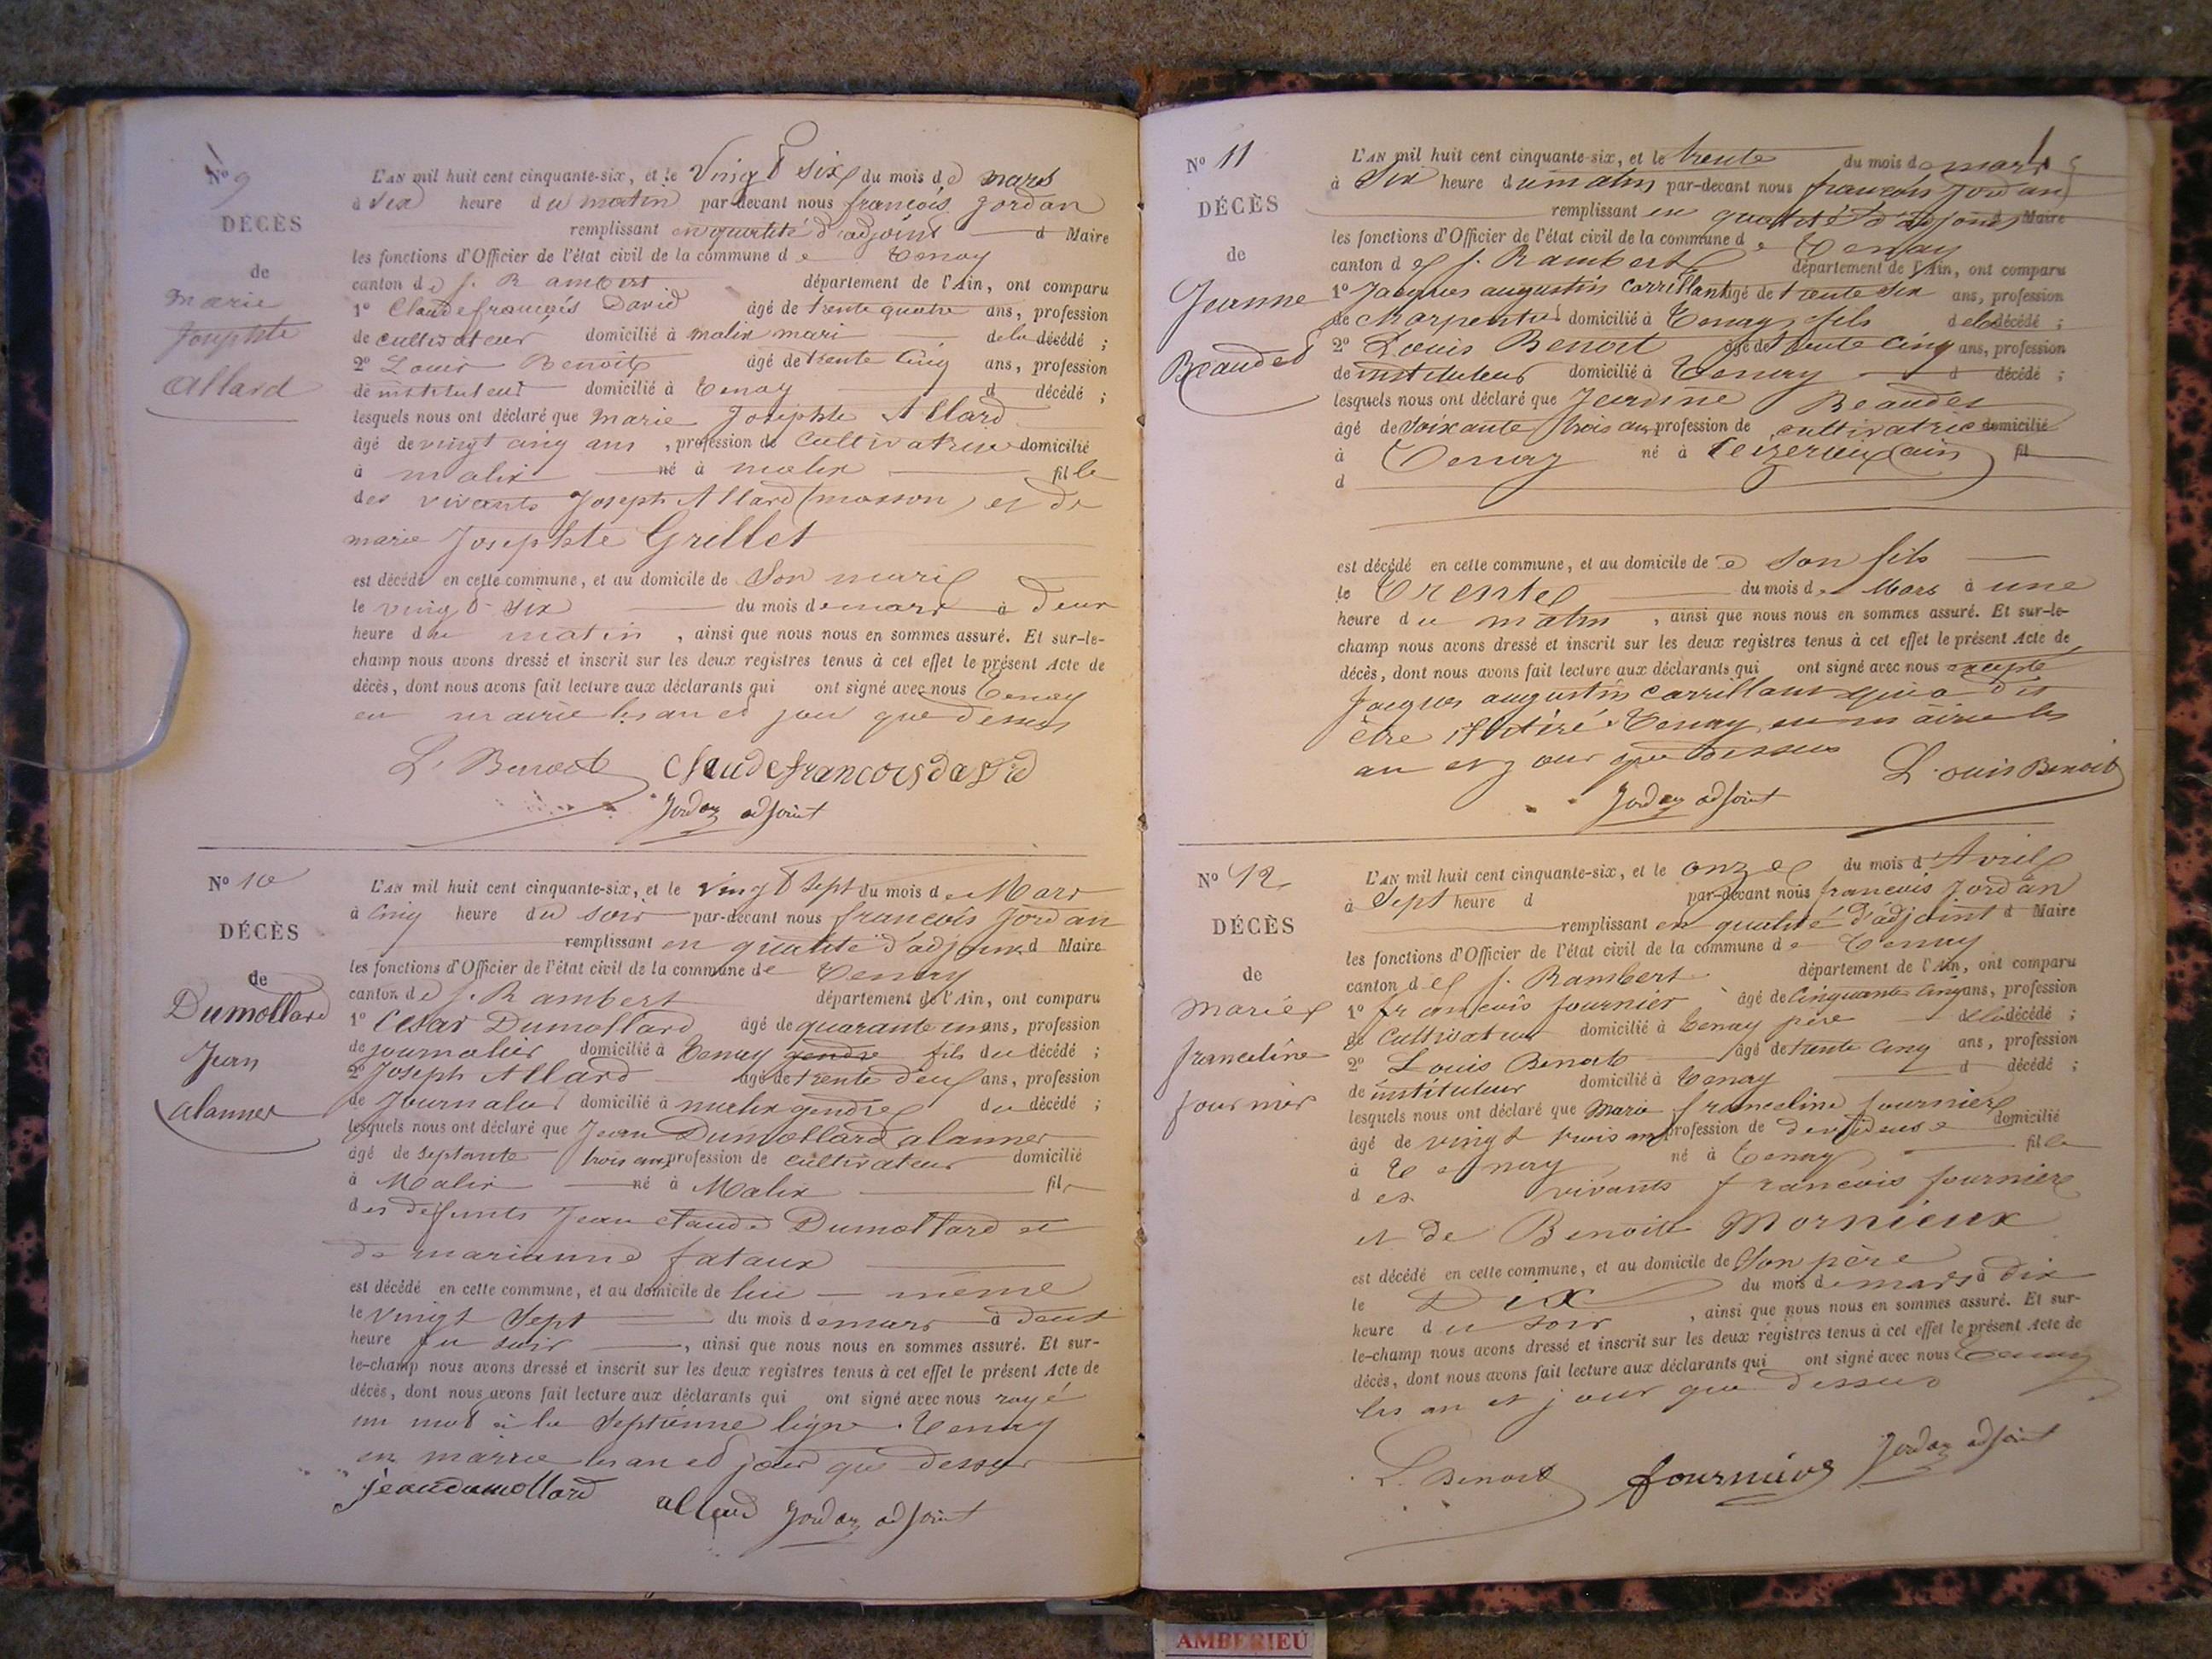 N° 9
DÉCÈS
de
marie
Josephte
Allard
L'AN mil huit cent cinquante-six, et le Vingt six du mois de mars
à six heure du matin par-devant nous francois Jordan
remplissant en qualité d'adjoint d Maire
les fonctions d'Officier de l'état civil de la commune de Tenay
canton de S. Rambert département de l'Ain, ont comparu
1° Claude francois David âgé de trente quatre ans, profession
de cultivateur domicilié à malix mari de la décédé ;
2° Louis Benoit âgé de trente cinq ans, profession
de instituteur domicilié à Tenay d décédé ;
lesquels nous ont déclaré que marie Josephte Allard
âgé de vingt cinq ans, profession de cultivatrice domicilié
à malix né à malix fille
des vivants Joseph Allard (masson) et de
marie Josephte Grillet
est décédé en cette commune, et au domicile de son mari
le vingt six du mois de mars à deux
heure du matin, ainsi que nous nous en sommes assuré. Et sur-le-
champ nous avons dressé et inscrit sur les deux registres tenus à cet effet le présent Acte de
décès, dont nous avons fait lecture aux déclarants qui ont signé avec nous Tenay
en mairie les an et jour que dessus
L. Benoit Claude francois david
Jordan adjoint
N° 10
DÉCÈS
de
Dumollard
Jean
alanner
L'AN mil huit cent cinquante-six, et le vingt sept du mois de Mars
à cinq heure du soir par-devant nous francois Jordan
remplissant en qualité d'adjoint d Maire
les fonctions d'Officier de l'état civil de la commune de Tenay
canton de S. Rambert département de l'Ain, ont comparu
1° César Dumollard âgé de quarante un ans, profession
de journalier domicilié à Tenay gendre fils du décédé ;
2° Joseph Allard âgé de trente deux ans, profession
de Journalier domicilié à malix gendre du décédé ;
lesquels nous ont déclaré que Jean Dumollard alanner
âgé de septante trois ans profession de cultivateur domicilié
à Malix né à Malix fils
des défunts Jean claude Dumollard et
de marianne fataux
est décédé en cette commune, et au domicile de lui même
le vingt sept du mois de mars à deux
heure du soir, ainsi que nous nous en sommes assuré. Et sur-
le-champ nous avons dressé et inscrit sur les deux registres tenus à cet effet le présent Acte de
décès, dont nous avons fait lecture aux déclarants qui ont signé avec nous rayé
un mot à la septienne ligne. Tenay
en mairie les an et jour que dessus
jean dumollard allard Jordan adjoint
N° 11
DÉCÈS
de
Jeanne
Beaudet
L'AN mil huit cent cinquante-six, et le trente du mois de mars
à six heure du matin par-devant nous francois Jordan
remplissant en qualité d'adjoint d Maire
les fonctions d'Officier de l'état civil de la commune de Tenay
canton de S. Rambert département de l'Ain, ont comparu
1° Jacques augustin Carrillant âgé de trente six ans, profession
de charpentier domicilié à Tenay fils de la décédé ;
2° Louis Benoit âgé de trente cinq ans, profession
de instituteur domicilié à Tenay d décédé ;
lesquels nous ont déclaré que Jeanne Beaudet
âgé de soixante trois ans profession de cultivatrice domicilié
à Tenay né à Ceizerieux (ain) fil
d
est décédé en cette commune, et au domicile de son fils
le Trente du mois de Mars à une
heure du matin, ainsi que nous nous en sommes assuré. Et sur-le-
champ nous avons dressé et inscrit sur les deux registres tenus à cet effet le présent Acte de
décès, dont nous avons fait lecture aux déclarants qui ont signé avec nous excepté
Jacques augustin Carrillant qui a dit
être illetiré. Tenay en mairie les
an et jour que dessus Louis Benoit
Jordan adjoint
N° 12
DÉCÈS
de
Marie
franceline
fournier
L'AN mil huit cent cinquante-six, et le onze du mois d'Avril
à Sept heure d par-devant nous francois Jordan
remplissant en qualité d'adjoint d Maire
les fonctions d'Officier de l'état civil de la commune de Tenay
canton de S. Rambert département de l'Ain, ont comparu
1° francois fournier âgé de cinquante cinq ans, profession
de cultivateur domicilié à Tenay père de la décédé ;
2° Louis Benoit âgé de trente cinq ans, profession
de instituteur domicilié à Tenay d décédé ;
lesquels nous ont déclaré que Marie franceline fournier
âgé de vingt trois ans profession de devideuse domicilié
à Tenay né à Tenay fille
des vivants francois fournier
et de Benoite Mornieux
est décédé en cette commune, et au domicile de son père
le Dix du mois de mars à dix
heure du soir, ainsi que nous nous en sommes assuré. Et sur-
le-champ nous avons dressé et inscrit sur les deux registres tenus à cet effet le présent Acte de
décès, dont nous avons fait lecture aux déclarants qui ont signé avec nous Tenay
les an et jour que dessus
L. Benoit fournier Jordan adjoint
AMBERIEU